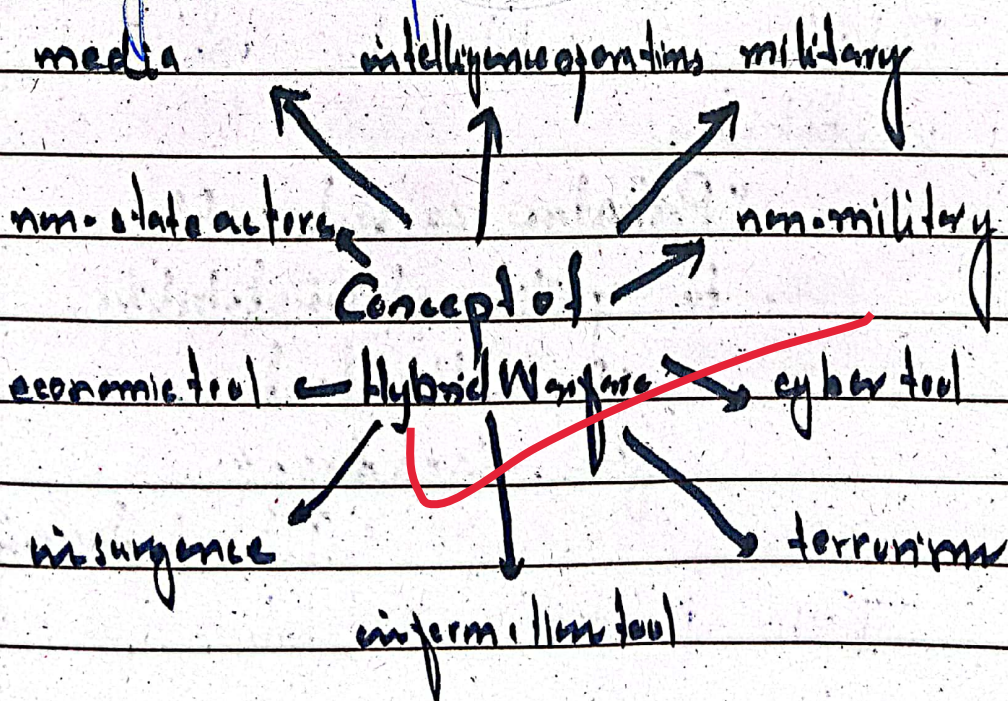 media intelligence operations military
non-state actors non-military
Concept of
economic tool Hybrid Warfare cyber tool
insurgence terrorism
information tool